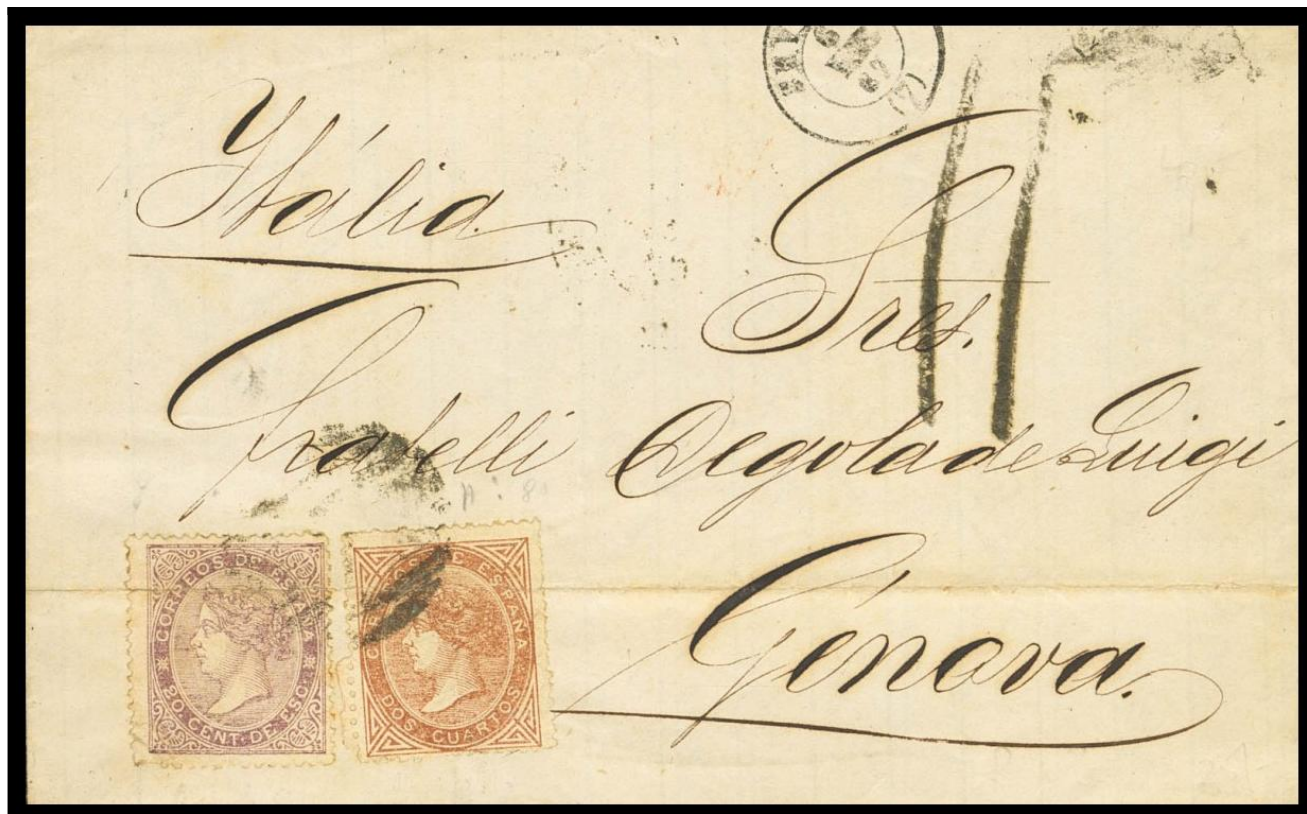 Itália
Sres.
Fratelli Degola de Luigi
Génova.
CORREOS DE ESPAÑA
20 CENT. DE ESCO.
DE ESPAÑA
DOS CUARTOS